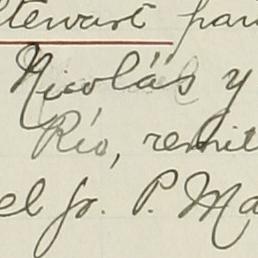 Stewart par
Nicolás y
Río, remit
el Sr. P. Ma